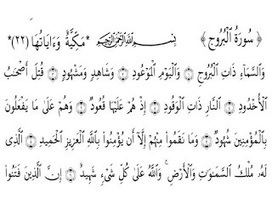 ﴿ سُورَةُ الْبُرُوجِ ﴾ بِسْمِ اللَّهِ الرَّحْمَٰنِ الرَّحِيمِ *مَكِّيَّةٌ وَءَايَاتُهَا (٢٢)*
وَالسَّمَآءِ ذَاتِ الْبُرُوجِ ۝ وَالْيَوْمِ الْمَوْعُودِ ۝ وَشَاهِدٍ وَمَشْهُودٍ ۝ قُتِلَ أَصْحَٰبُ
الْأُخْدُودِ ۝ النَّارِ ذَاتِ الْوَقُودِ ۝ إِذْ هُمْ عَلَيْهَا قُعُودٌ ۝ وَهُمْ عَلَىٰ مَا يَفْعَلُونَ
بِالْمُؤْمِنِينَ شُهُودٌ ۝ وَمَا نَقَمُوا۟ مِنْهُمْ إِلَّآ أَن يُؤْمِنُوا۟ بِاللَّهِ الْعَزِيزِ الْحَمِيدِ ۝ الَّذِى
لَهُۥ مُلْكُ السَّمَٰوَٰتِ وَالْأَرْضِ ۚ وَاللَّهُ عَلَىٰ كُلِّ شَىْءٍ شَهِيدٌ ۝ إِنَّ الَّذِينَ فَتَنُوا۟